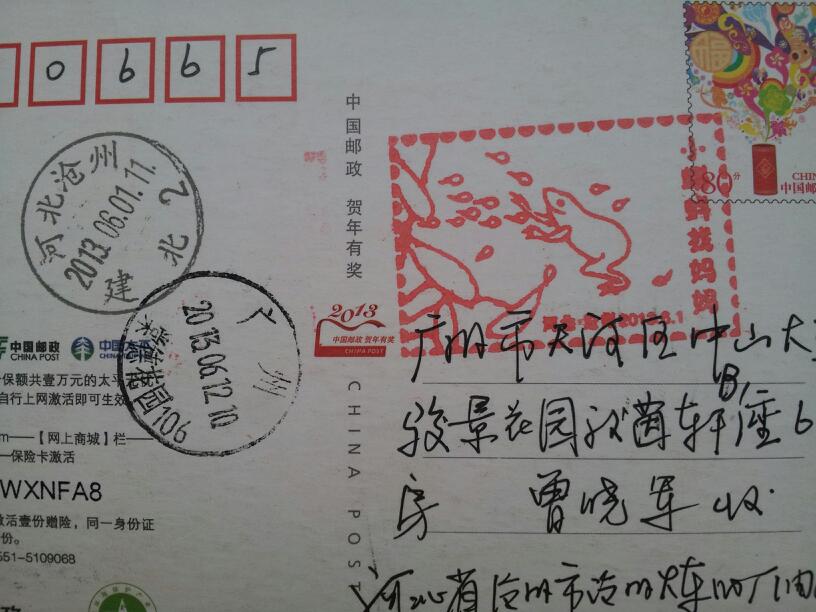 0 6 6 5
80分
CHIN
中国邮
中国邮政 贺年有奖
CHINA POST
河北沧州
2013.06.01.11
建北 2
小蝌蚪找妈妈
广州
2013.06.12.10
花园106
2013
中国邮政 贺年有奖
CHINA POST
中国邮政
CHINA POST
中国
保额共壹万元的太平
自行上网激活即可生效
m——【网上商城】栏—
—保险卡激活
WXNFA8
激活壹份赠险,同一身份证
份。
551-5109068
广州市天河区中山大
骏景花园 茵轩B座6
房 曾晓军收
河北省沧州市沧州火车